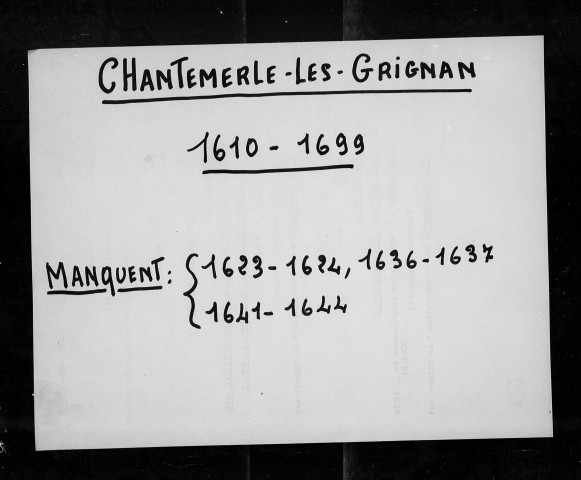 CHANTEMERLE-LES-GRIGNAN
1610 - 1699
MANQUENT: { 1623-1624, 1636-1637
1641-1644